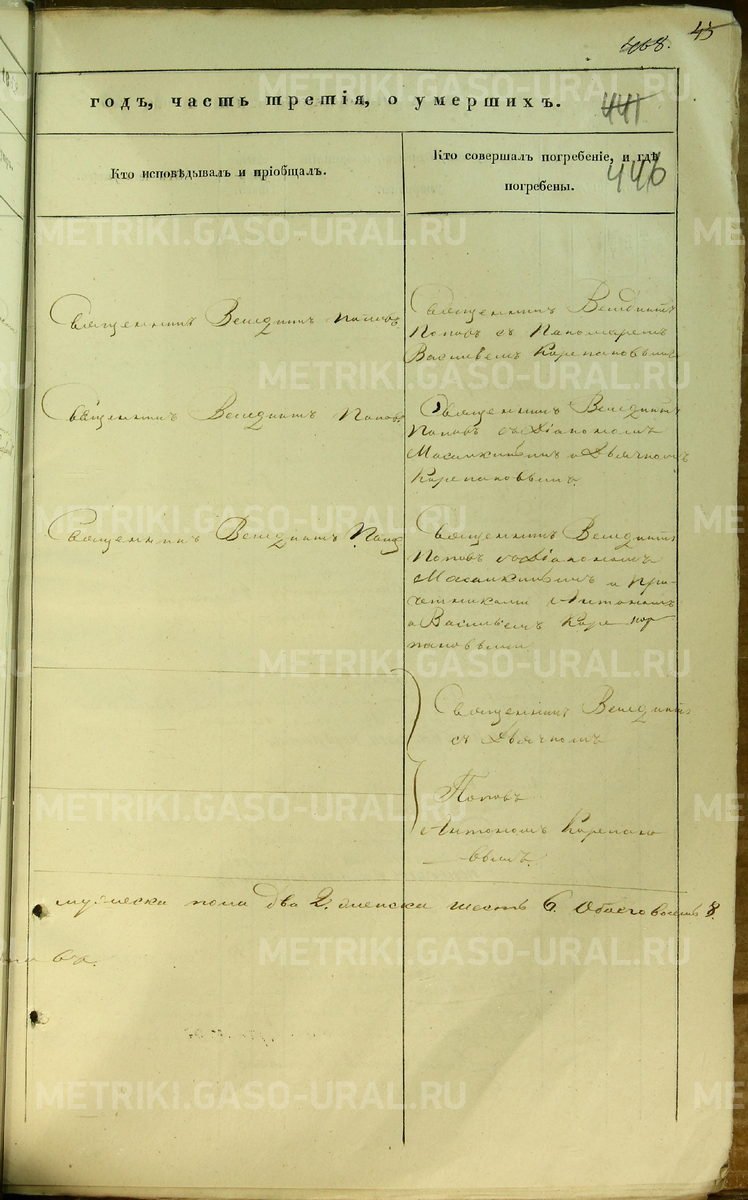 45
468.
годъ, часть третія, о умершихъ.
441
446
Кто исповѣдывалъ и пріобщалъ.
Кто совершалъ погребеніе, и гдѣ
погребены.
Священникъ Венедиктъ Поповъ
Священникъ Венедиктъ
Поповъ съ Пономаремъ
Васильемъ Карепановымъ
Священникъ Венедиктъ Поповъ
Священникъ Венедиктъ
Поповъ съ Діакономъ
и Дьячкомъ
Карепановымъ.
Священникъ Венедиктъ Попов
Священникъ Венедиктъ
Поповъ съ Діакономъ
и При-
четниками Антономъ
и Васильемъ Каре
пановыми.
Священникъ Венедиктъ
съ Дьячкомъ
Поповъ
Антономъ Карепано
вымъ.
мужеска пола два 2. женска шесть 6. Обоего восемь 8.
METRIKI.GASO-URAL.RU